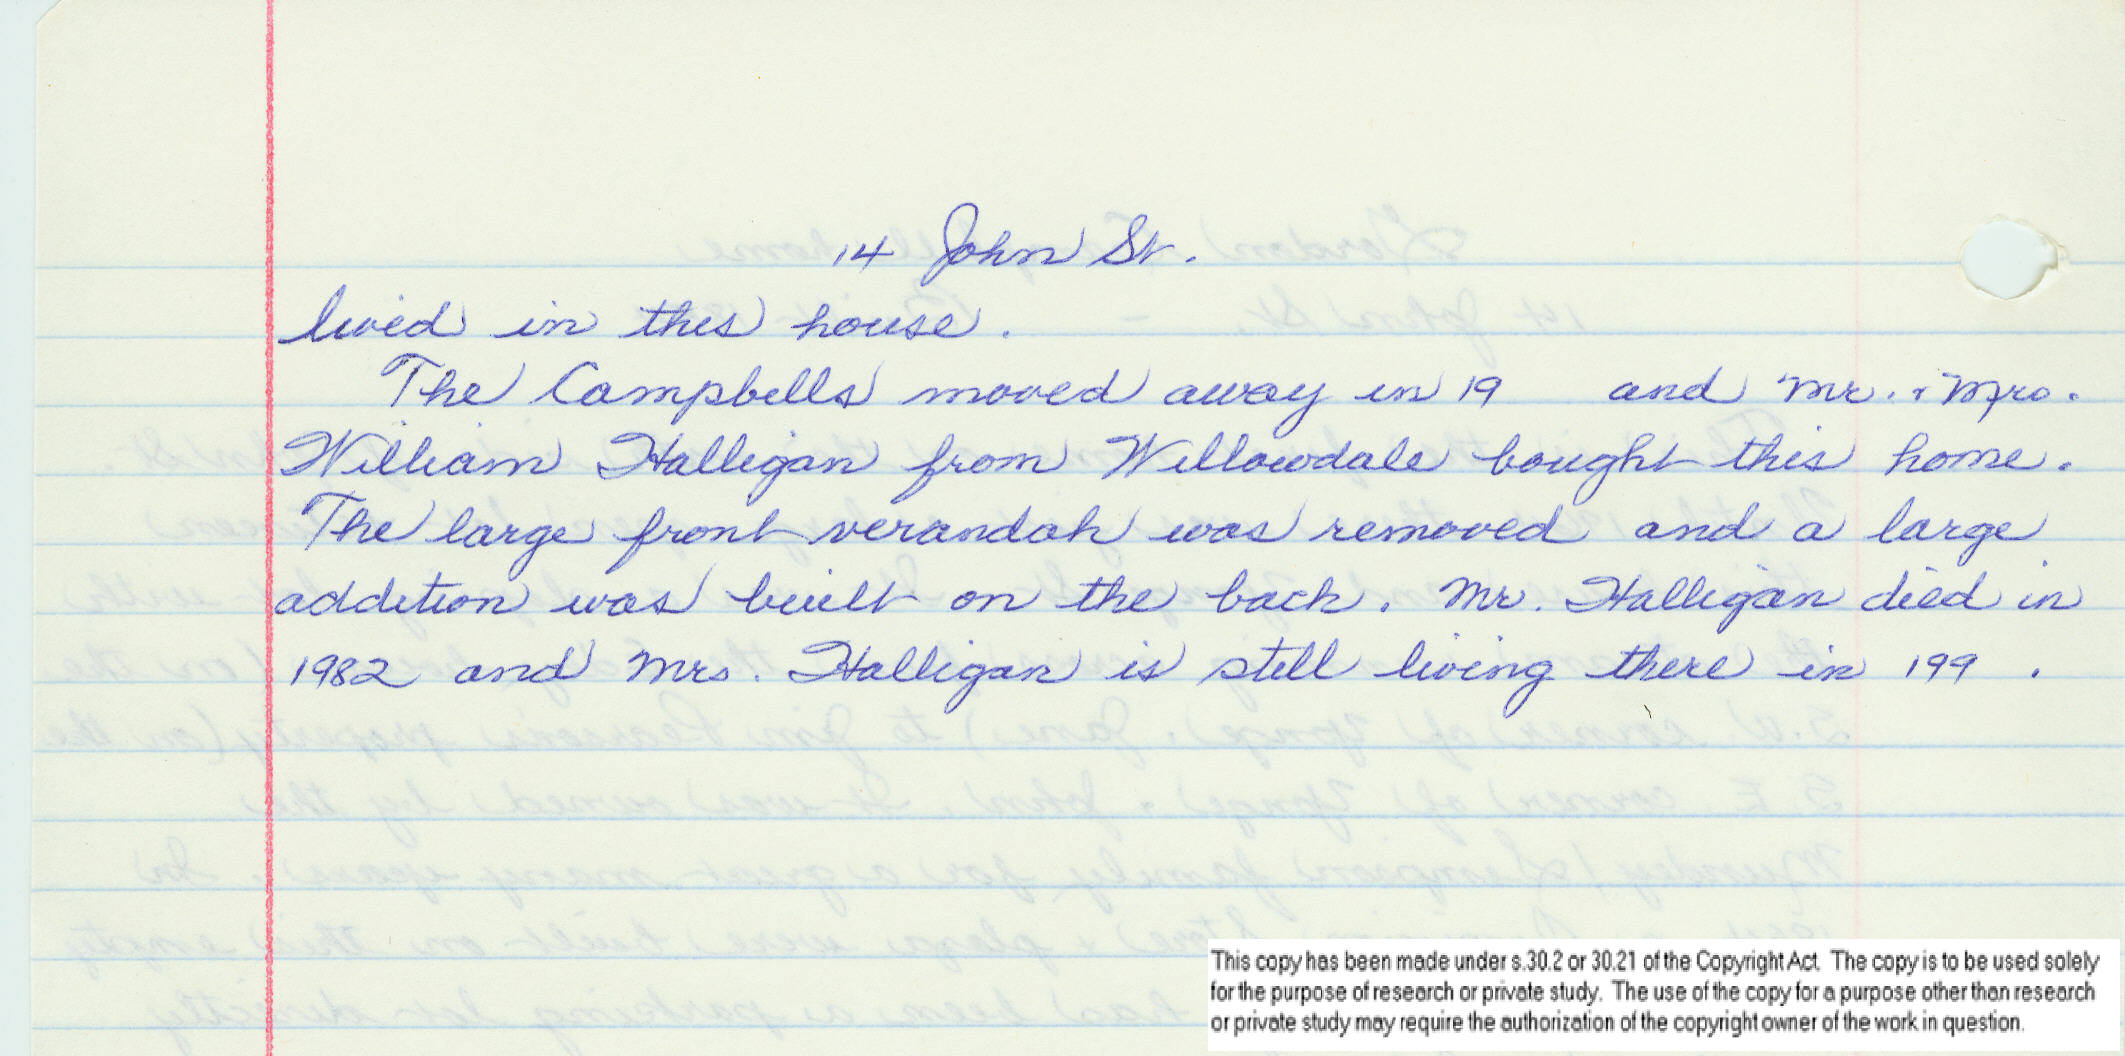 14 John St.
lived in this house.
The Campbells moved away in 19    and Mr. & Mrs.
William Halligan from Willowdale bought this home.
The large front verandah was removed and a large
addition was built on the back. Mr. Halligan died in
1982 and Mrs. Halligan is still living there in 199  .
This copy has been made under s.30.2 or 30.21 of the Copyright Act. The copy is to be used solely
for the purpose of research or private study. The use of the copy for a purpose other than research
or private study may require the authorization of the copyright owner of the work in question.